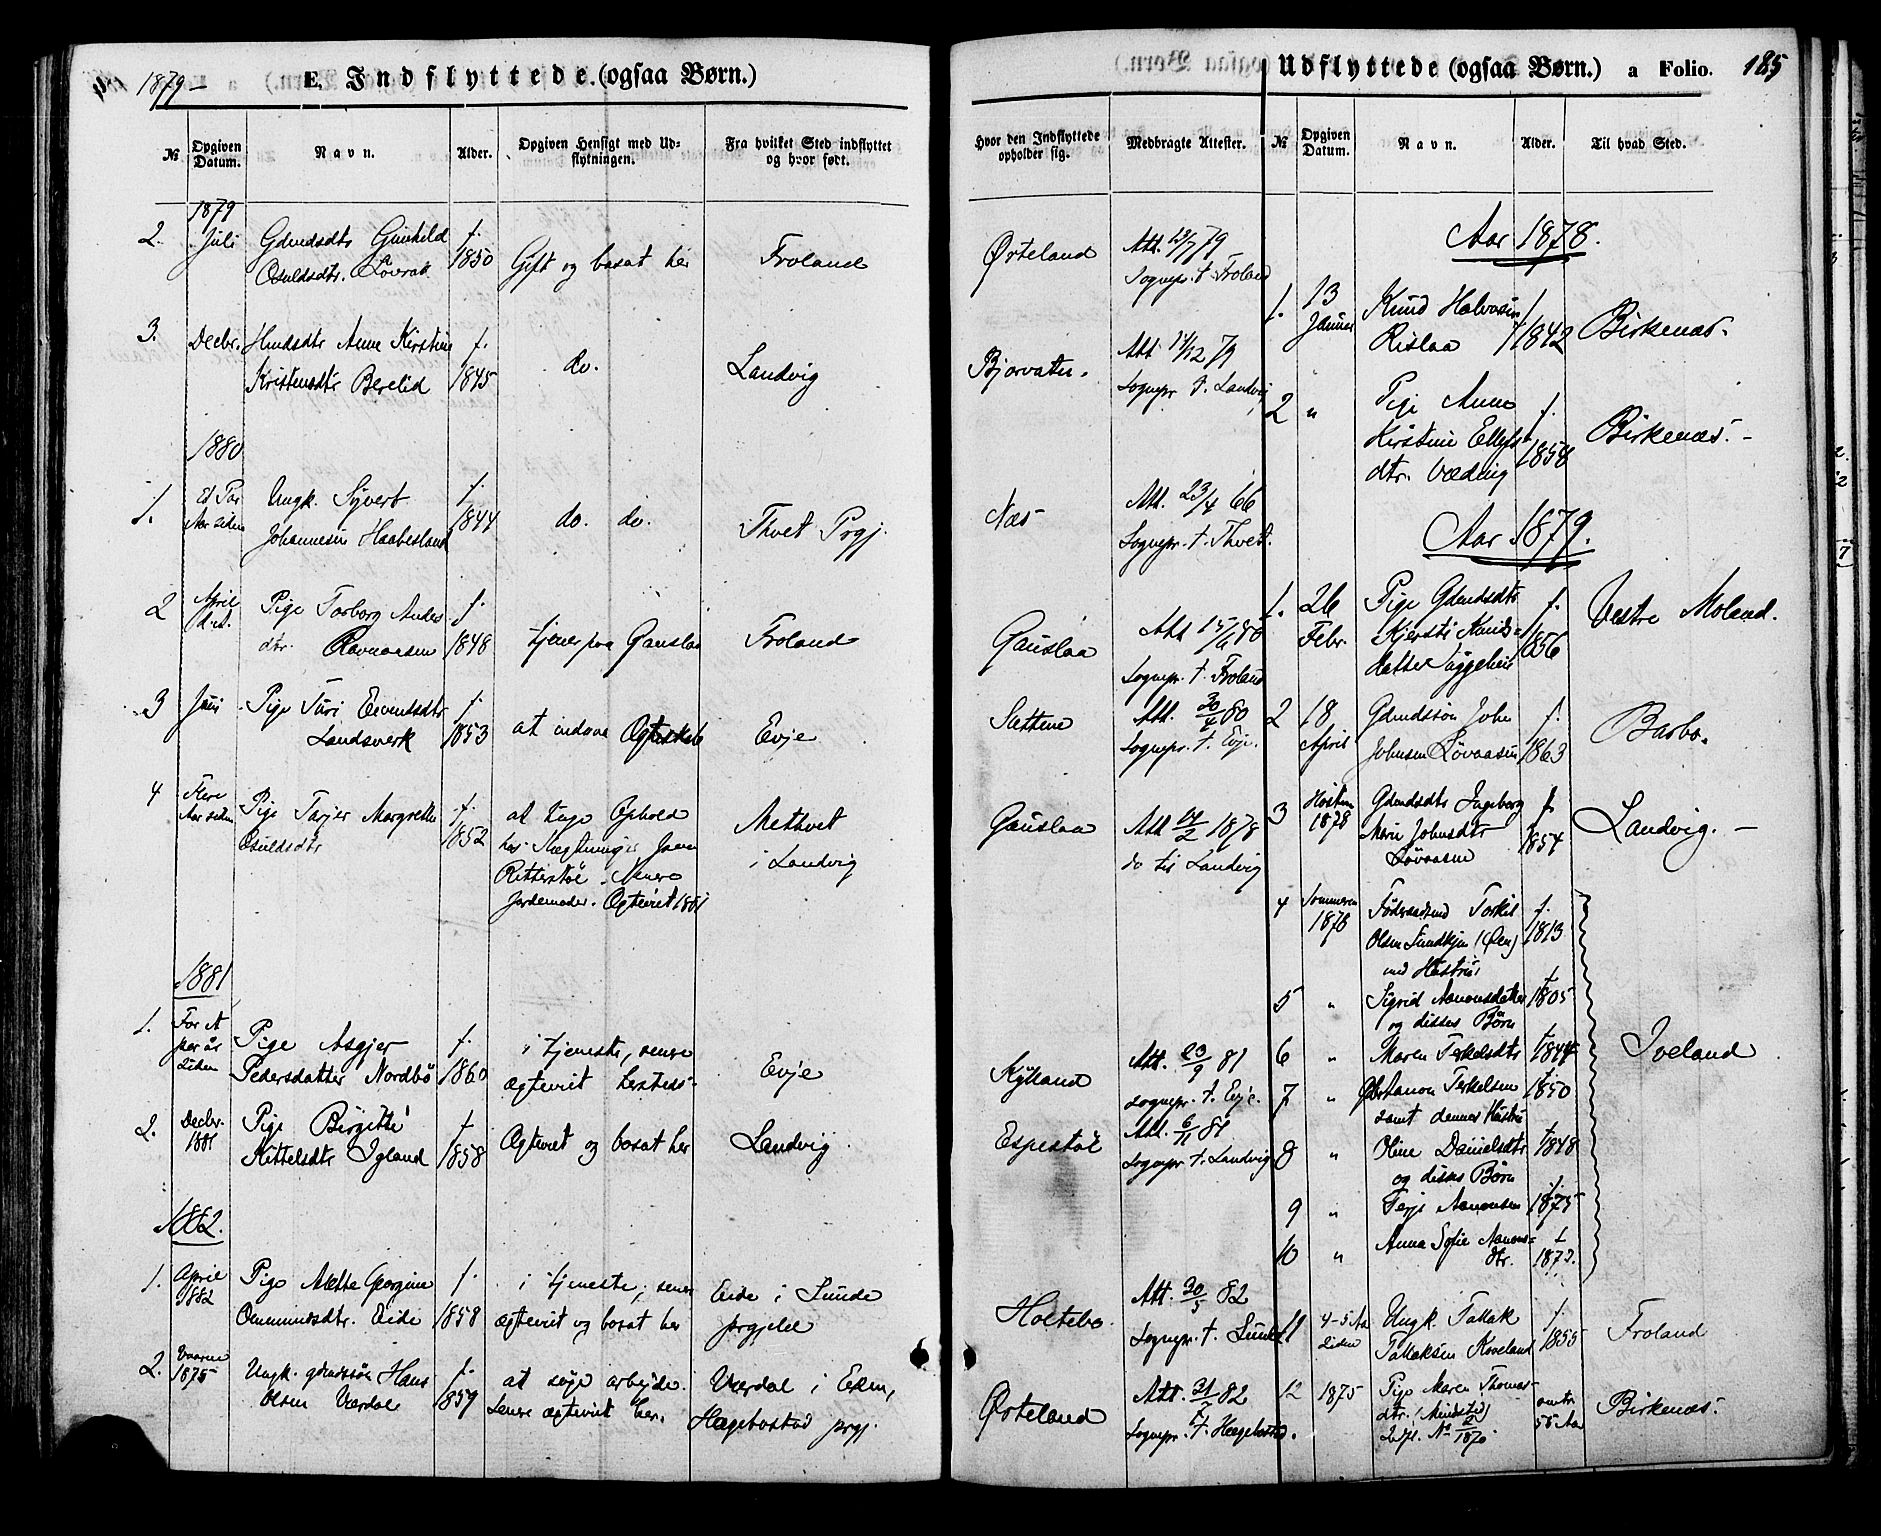 1879 –
E. Indflyttede. (ogsaa Børn.)
№
Opgiven Datum.
Navn.
Alder.
Opgiven Hensigt med Udflytningen.
Fra hvilket Sted indflyttet og hvor født.
Hvor den Indflyttede opholder sig.
Medbragte Attester.
1879
2. Juli Gdmdsdtr Gunhild f. 1850 Gift og bosat her Froland Ørteland Att. 29/7 79
Osuldsdtr. Løvrak Sognepr. t. Froland
3. Decbr. Hmdsdtr Anne Kirstine f. 1845 do. Landvig Bjorvatn. Att. 11/12 79
Kristensdtr Berelid Sognepr t. Landvig
1880
1. et Par Aar siden Ungk. Syvert f. 1844 do. do. Thvet Prgj. Næs Att. 23/4 66
Johannesen Haabesland Sognepr. t. Thvet.
2 April d.A. Pige Torborg Anders f. 1848 tjener paa Gauslaa Froland Gauslaa Att
dtr. Ravnaasen Sognepr. t. Froland
3 Juni Pige Turi Eivindsdtr f. 1853 at indgaa Ægteskab Evje Sættene Att. 30/4 80
Landsverk Sognepr. t. Evje.
4 Flere Aar siden Pige Tarjer Margrethe f. 1852 at tage Ophold Methvet i Landvig Gauslaa Att 14/2 1878
Osuldsdtr her do til Landvig
Ritterstøl. Senere
Jordemoder. Ægteviet 1881
1881
1. For et par år siden Pige Asgjer f. 1860 i tjeneste, senere Evje Kylland Att. 20/9 81
Pedersdatter Nordbø ægteviet hersteds Sognepr. t. Evje.
2. Decbr. 1881 Pige Birgitte f 1858 Ægteviet og bosat her Landvig Espestøl Att. 6/11 81
Kittelsdtr Igland Sognepr. t. Landvig
1882.
1. April 1882 Pige Mette Georgine f. 1858 i tjeneste, senere Eide i Lunde Holtebo. Att. 30/5 82
Ommundsdtr. Eide ægteviet og bosat her prgjeld Sognepr. t. Lunde
2. Vaaren 1875 Ungk. gmdssøn Hans f. 1859 at søge arbejde. Værdal i Eken, Ørteland Att. 31/7 82
Olsen Værdal Senere ægteviet her. Hægebostad prgj. Sognepr. t. Hægebostad.
Udflyttede (ogsaa Børn.) a Folio. 185
№
Opgiven Datum.
Navn.
Alder.
Til hvad Sted.
Aar 1878.
1. 13 Januar Knud Halvorsen f 1842 Birkenæs.
Rislaa
2 " Pige Anne f. 1858 Birkenæs. –
Kirstine Ellefs
dtr. Væding
Aar 1879.
1. 26 Febr. Pige Gdmdsdtr f. 1856 Vestre Moland.
Kjersti Knuds-
datter Uggehus
2 18 April Gdmdssøn John f. 1863 Barbo.
Johnsen Løvaasen
3 Høsten 1878 Gdmdsdtr Ingeborg f. 1854 Landvig. –
Marie Johnsdtr
Løvaasen
4 Sommeren 1878 Føderaadsmd Torkel f. 1813 Iveland
Olsen (Øen)
med Hustru
5 " Sigrid Aanonsdatter f 1805
og disses Børn
6 " Maren Terkelsdtr f 1844
7 " Aanon Terkelsen f. 1850
samt dennes Hustru
8 " Oline Danielsdtr f 1848
og disses Børn
9 " Terje Aanonsen f. 1875
10 " Anna Sofie Aanons- f 1873.
dtr.
11 4-5 Aar siden Ungk. Tallak f 1855 Froland
Tallaksen Koveland
12 1875 Pige Maren Thomas- omtr. 55 Aar Birkenæs.
dtr. (Mindstid)
Indfl. № 2/1870